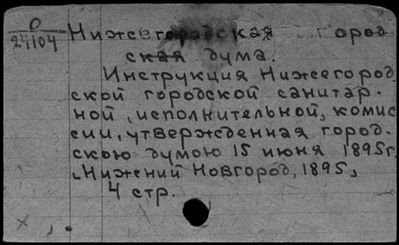 О
24104
Нижегородская город
ская дума.
Инструкция Нижегород
ской городской санитар.
ной, исполнительной, комис
сии, утвержденная город.
скою думою 15 июня 1895г.
Нижний Новгород, 1895,
4 стр.